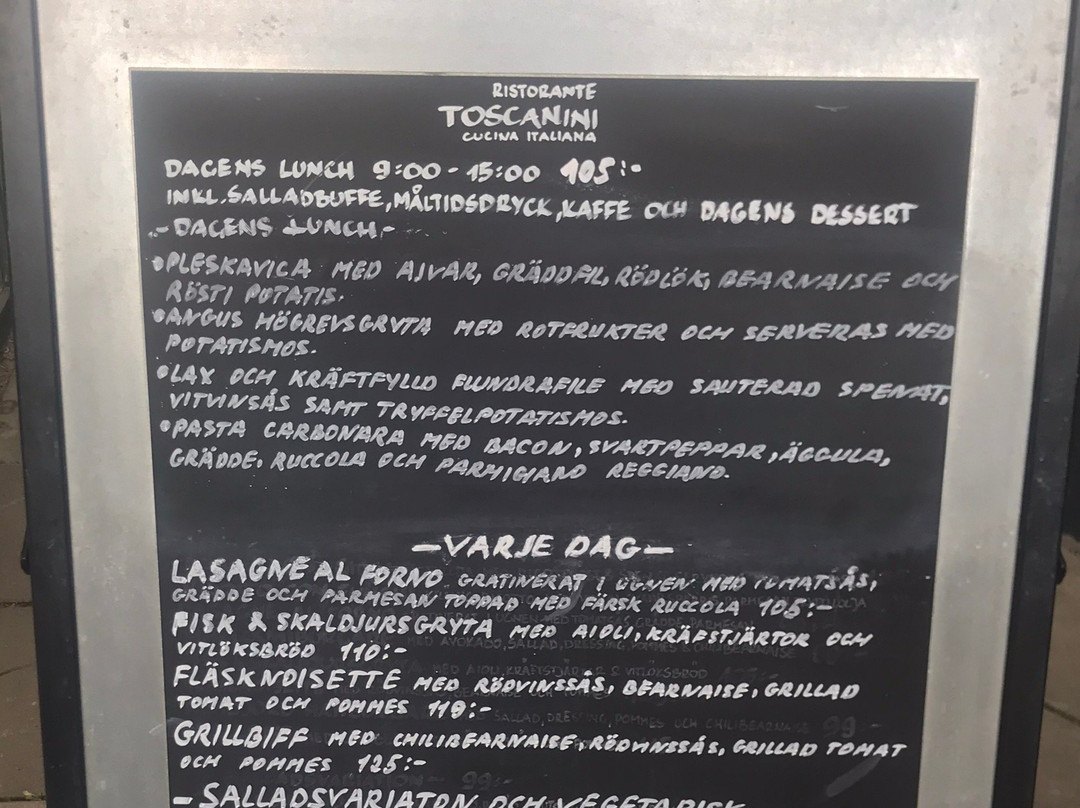 RISTORANTE
TOSCANINI
CUCINA ITALIANA
DAGENS LUNCH 9:00 - 15:00 105:-
INKL. SALLADBUFFE, MÅLTIDSDRYCK, KAFFE OCH DAGENS DESSERT
- DAGENS LUNCH -
•PLESKAVICA MED AJVAR, GRÄDDFIL, RÖDLÖK, BEARNAISE OCH
RÖSTI POTATIS.
•ANGUS HÖGREVSGRYTA MED ROTFRUKTER OCH SERVERAS MED
POTATISMOS.
•LAX OCH KRÄFTFYLLD FLUNDRAFILE MED SAUTERAD SPENAT,
VITVINSÅS SAMT TRYFFELPOTATISMOS.
•PASTA CARBONARA MED BACON, SVARTPEPPAR, ÄGGULA,
GRÄDDE, RUCCOLA OCH PARMIGIANO REGGIANO.
- VARJE DAG -
LASAGNE AL FORNO GRATINERAT I UGNEN MED TOMATSÅS,
GRÄDDE OCH PARMESAN TOPPAD MED FÄRSK RUCCOLA 105:-
FISK & SKALDJURSGRYTA MED AIOLI, KRÄFSTJÄRTOR OCH
VITLÖKSBRÖD 110:-
FLÄSKNOISETTE MED RÖDVINSSÅS, BEARNAISE, GRILLAD
TOMAT OCH POMMES 119:-
GRILLBIFF MED CHILIBEARNAISE, RÖDVINSSÅS, GRILLAD TOMAT
OCH POMMES 125:-
- SALLADSVARIATON OCH VEGETARISK